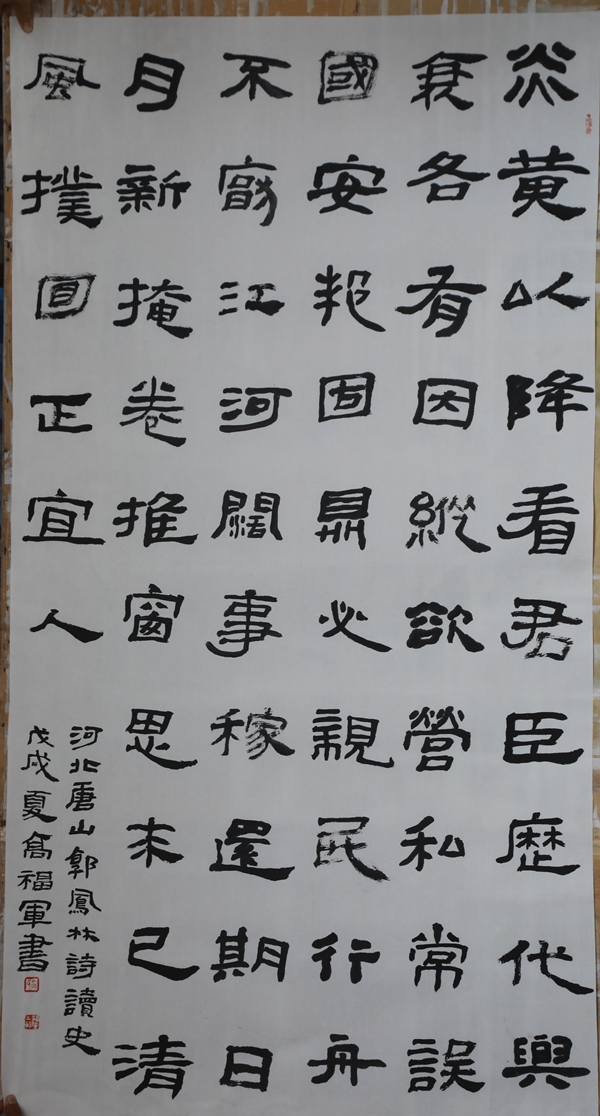 炎黄以降看君臣歷代興
衰各有因縱欲營私常誤
國安邦固鼎必親民行舟
不江河闊事稼還期日
月新掩卷推窗思未已清
風撲面正宜人
河北唐山郭鳳林詩讀史
戊戌夏高福軍書